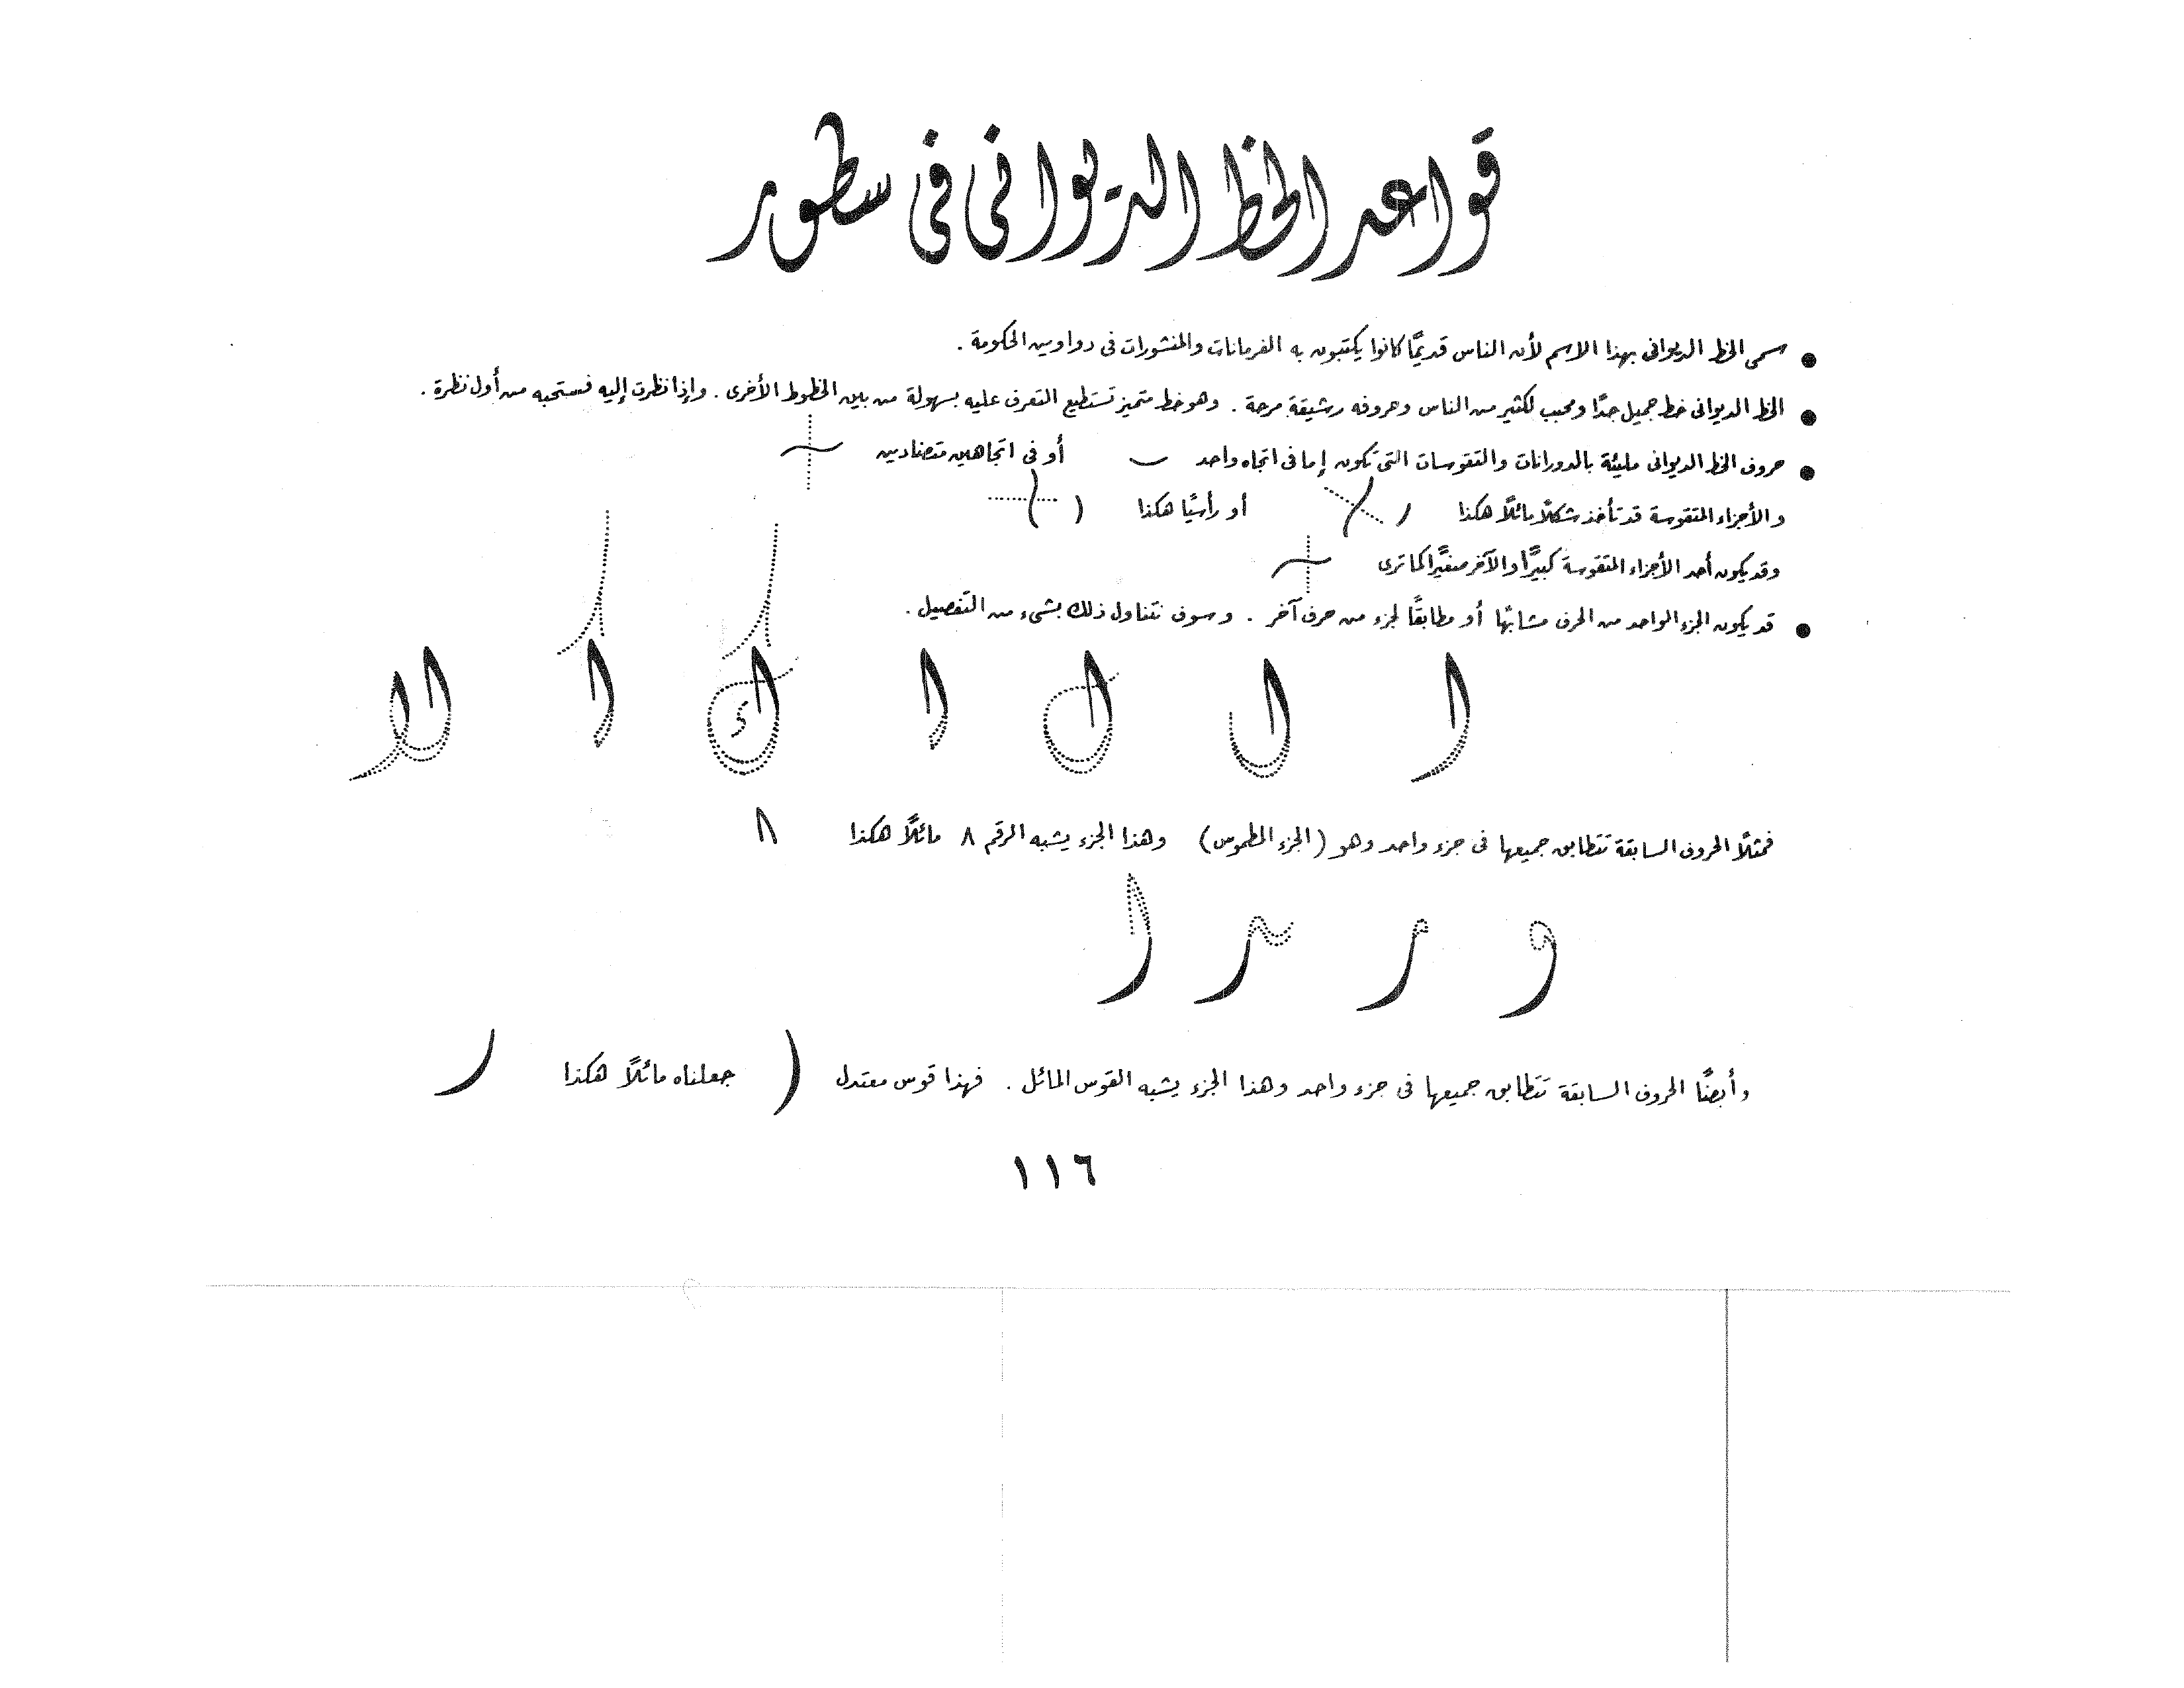 قواعد الخط الديوانى فى سطور
● سمى الخط الديوانى بهذا الاسم لأن الناس قديمًا كانوا يكتبون به الفرمانات والمنشورات فى دواوين الحكومة .
● الخط الديوانى خط جميل جدًا ومحبب لكثير من الناس وحروفه رشيقة مرحة . وهو خط متميز تستطيع التعرف عليه بسهولة من بين الخطوط الأخرى . وإذا نظرت إليه فستحبه من أول نظرة .
● حروف الخط الديوانى مليئة بالدورانات والتقوسات التى تكون إما فى اتجاه واحد أو فى اتجاهين متضادين
والأجزاء المتقوسة قد تأخذ شكلًا مائلًا هكذا أو رأسيًا هكذا
وقد يكون أحد الأجزاء المتقوسة كبيرًا والآخر صغيرًا كما ترى
● قد يكون الجزء الواحد من الحرف مشابهًا أو مطابقًا لجزء من حرف آخر . وسوف نتناول ذلك بشىء من التفصيل .
فمثلًا الحروف السابقة تتطابق جميعها فى جزء واحد وهو (الجزء المطموس) وهذا الجزء يشبه الرقم ٨ مائلًا هكذا ٨
و ر
وأيضًا الحروف السابقة تتطابق جميعها فى جزء واحد وهذا الجزء يشبه القوس المائل . فهذا قوس معتدل ( جعلناه مائلًا هكذا
١١٦